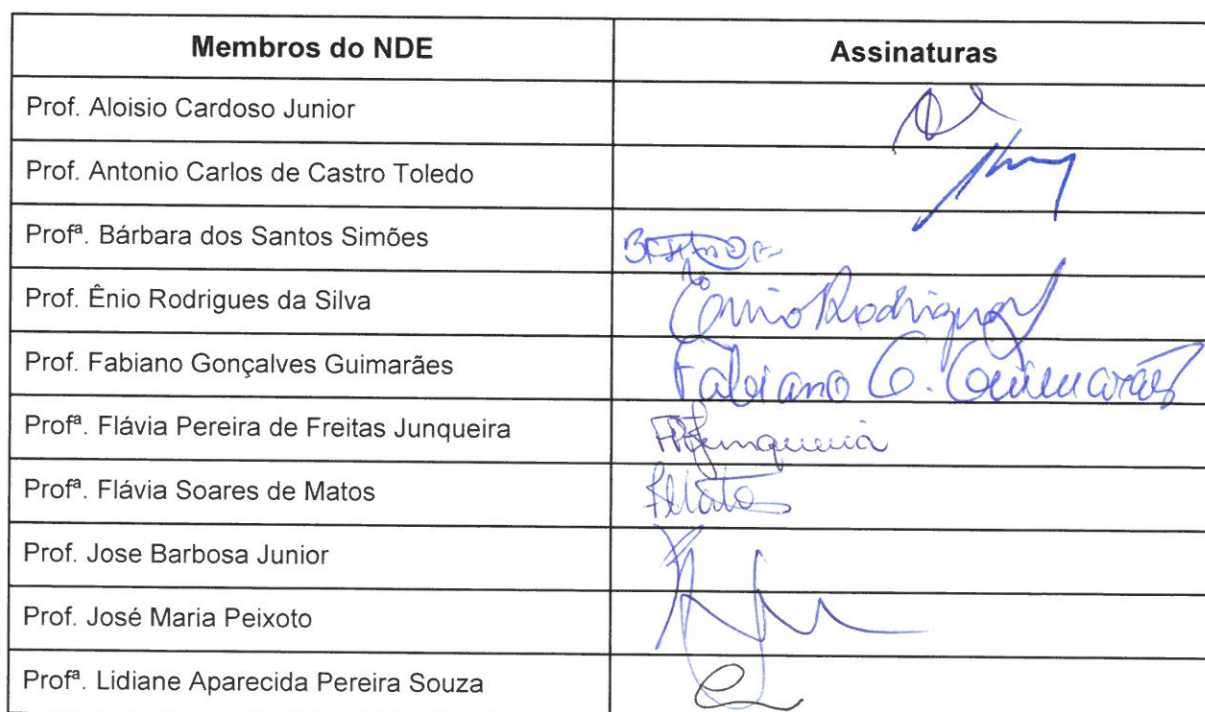 Membros do NDE Assinaturas
Prof. Aloisio Cardoso Junior
Prof. Antonio Carlos de Castro Toledo
Profª. Bárbara dos Santos Simões
Prof. Ênio Rodrigues da Silva Ênio Rodrigues
Prof. Fabiano Gonçalves Guimarães Fabiano G. Guimarães
Profª. Flávia Pereira de Freitas Junqueira FPFJunqueira
Profª. Flávia Soares de Matos FMatos
Prof. Jose Barbosa Junior
Prof. José Maria Peixoto
Profª. Lidiane Aparecida Pereira Souza